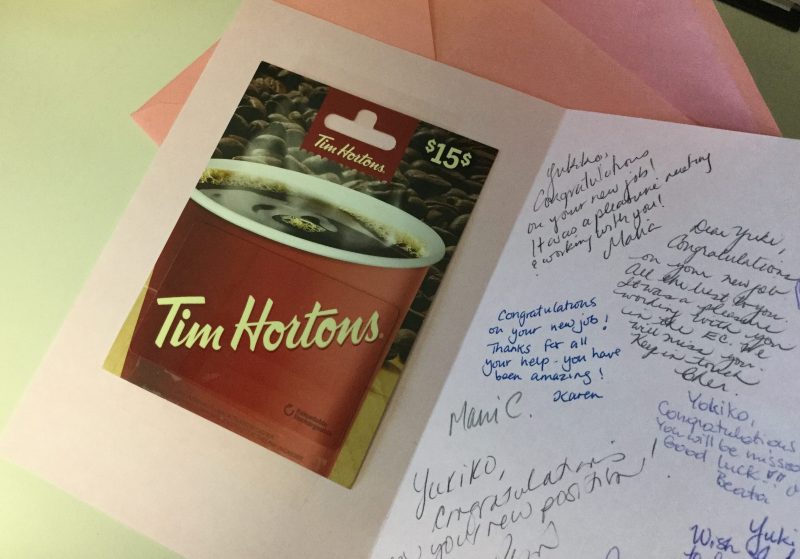 Tim Hortons.
$15$
Tim Hortons.
Reloadable
Rechargeable
Yukiko,
Congratulations
on your new job!
It was a pleasure meeting
& working with you!
Maria
Dear Yuki,
Congratulations
on your new job
All the best to you
It was a pleasure
working with you
in the EC. We
will miss you.
Keep in touch
Cher.
Congratulations
on your new job!
Thanks for all
your help - you have
been amazing!
Karen
Mani C.
Yokiko,
Congratulations
You will be missed
Good luck!
Beata
Yukiko,
Congratulations
on your new position!
Yuki
Wish